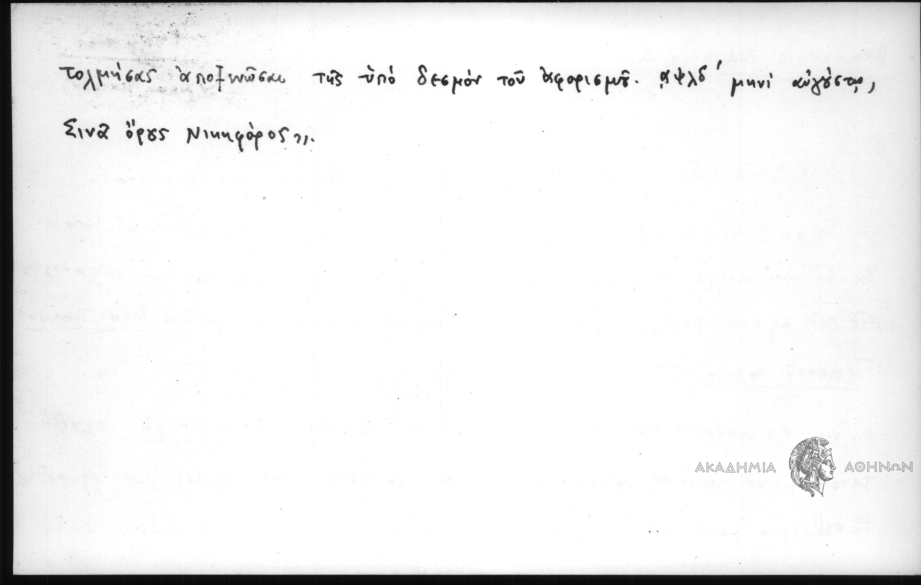 τολμήσας ἀποξενῶσαι τῆς ὑπὸ δεσμὸν τοῦ ἀφορισμοῦ. ͵αψλδʹ μηνὶ αὐγούστῳ,
Σινᾶ ὄρους Νικηφόρος».
ΑΚΑΔΗΜΙΑ ΑΘΗΝΩΝ